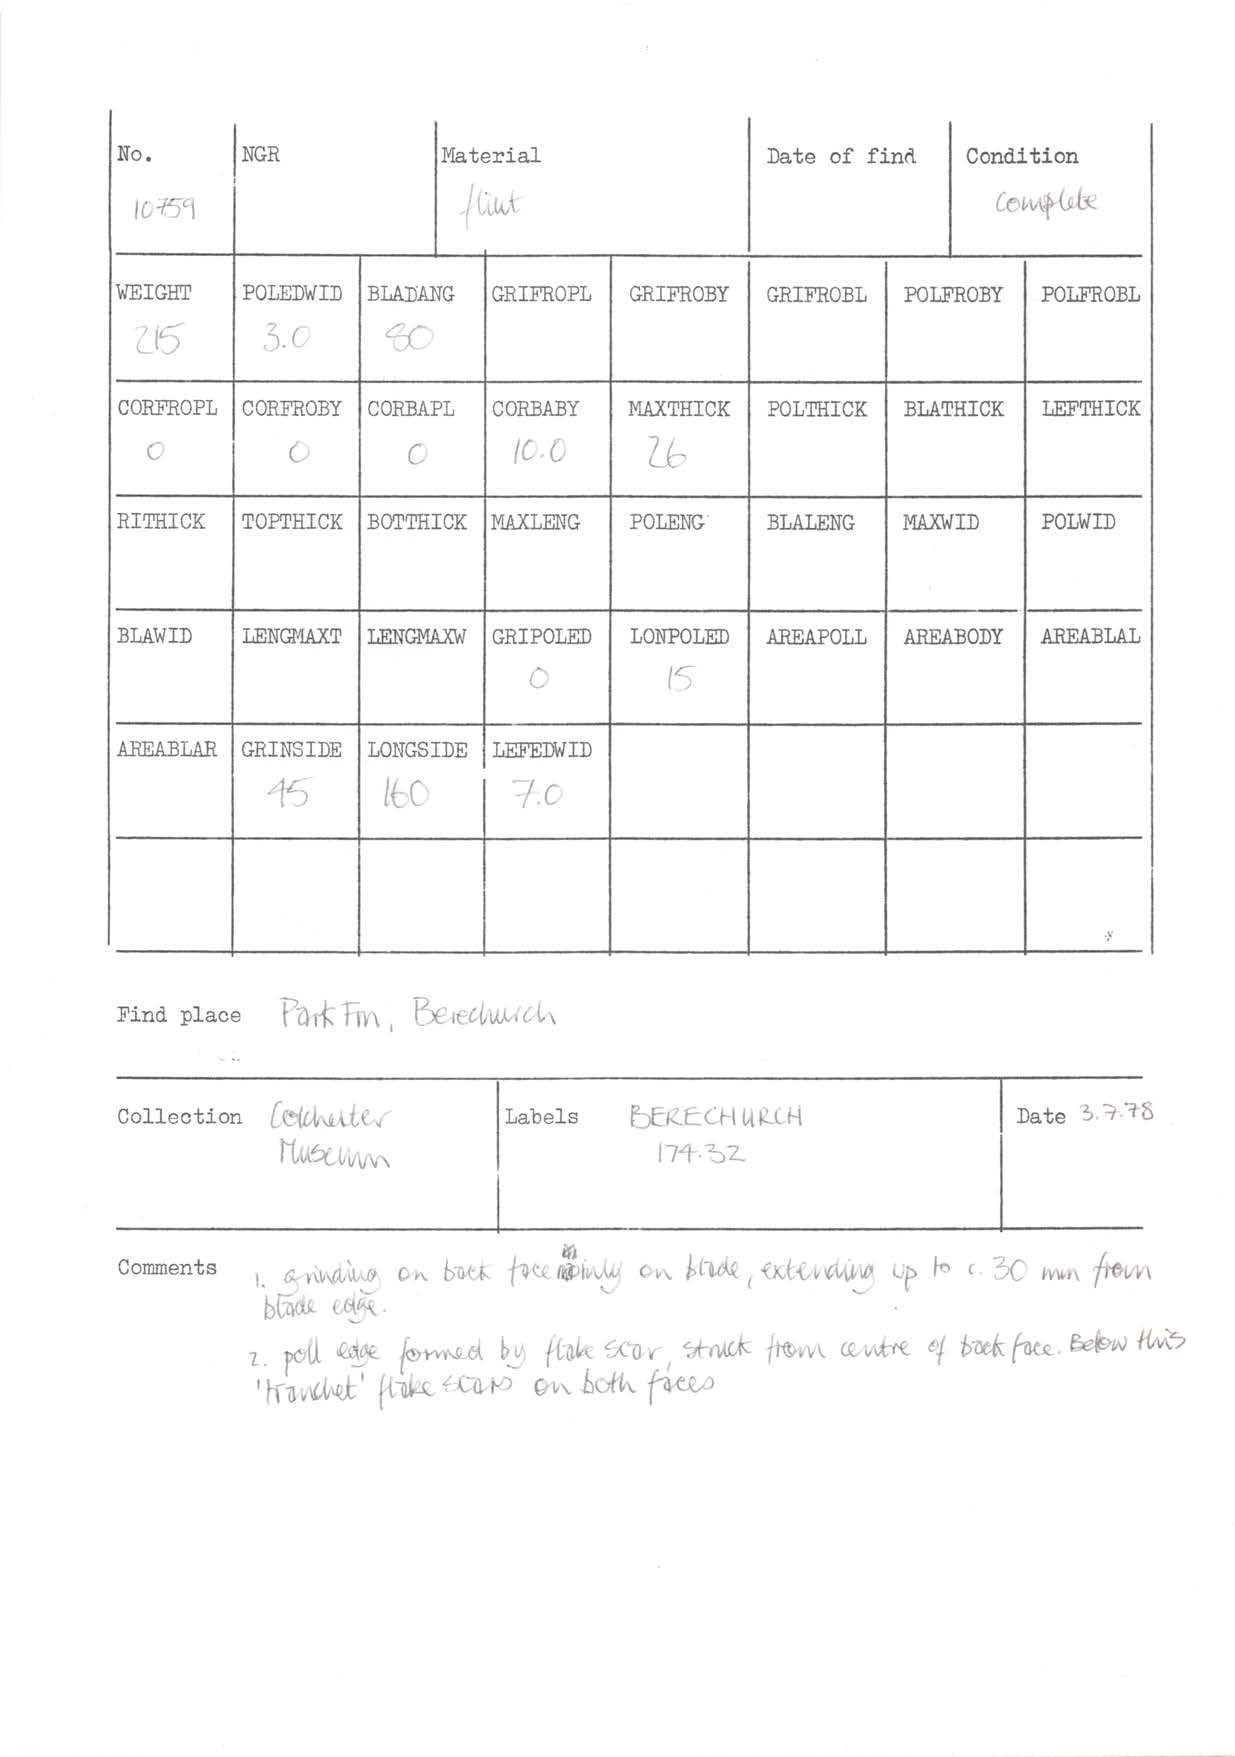 No. NGR Material Date of find Condition
10759 flint complete
WEIGHT POLEDWID BLADANG GRIFROPL GRIFROBY GRIFROBL POLFROBY POLFROBL
215 3.0 80
CORFROPL CORFROBY CORBAPL CORBABY MAXTHICK POLTHICK BLATHICK LEFTHICK
0 0 0 10.0 26
RITHICK TOPTHICK BOTTHICK MAXLENG POLENG BLALENG MAXWID POLWID
BLAWID LENGMAXT LENGMAXW GRIPOLED LONPOLED AREAPOLL AREABODY AREABLAL
0 15
AREABLAR GRINSIDE LONGSIDE LEFEDWID
45 160 7.0
Find place Park Fm, Berechurch
Collection Colchester Labels BERECHURCH Date 3.7.78
Museum 174.32
Comments 1. grinding on back face mainly on blade, extending up to c. 30 mm from
blade edge.
2. poll edge formed by flake scar, struck from centre of back face. Below this
'tranchet' flake scars on both faces